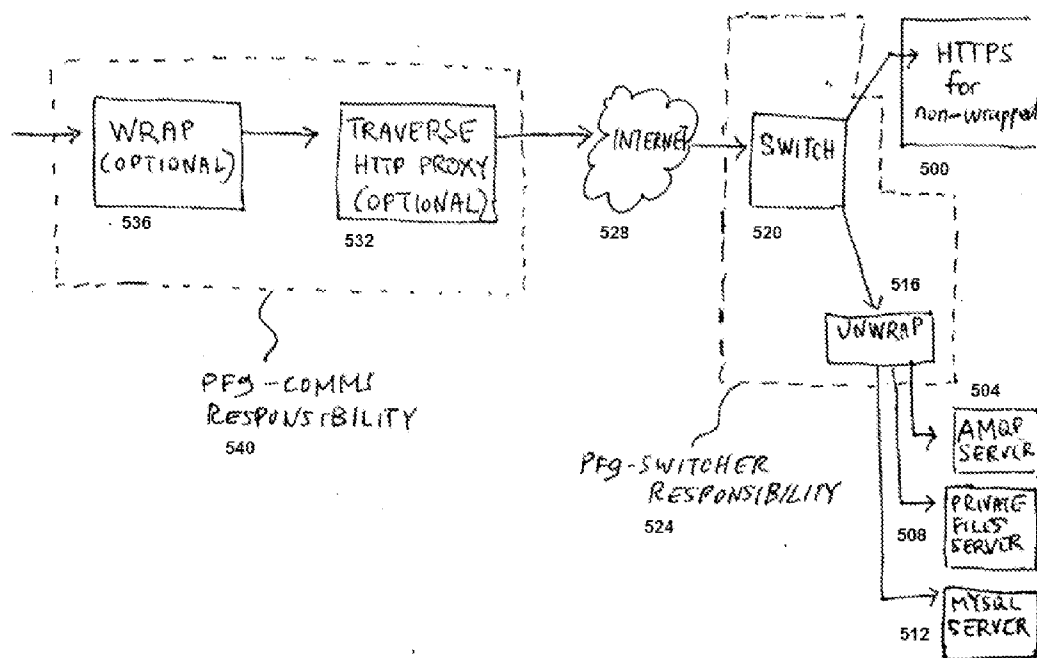 WRAP
(OPTIONAL)
536
TRAVERSE
HTTP PROXY
(OPTIONAL)
532
INTERNET
528
SWITCH
520
HTTPS
for
non-wrapped
500
516
UNWRAP
504
AMQP
SERVER
PRIVATE
FILES
SERVER
508
MYSQL
SERVER
512
PFg-COMMS
RESPONSIBILITY
540
PFg-SWITCHER
RESPONSIBILITY
524